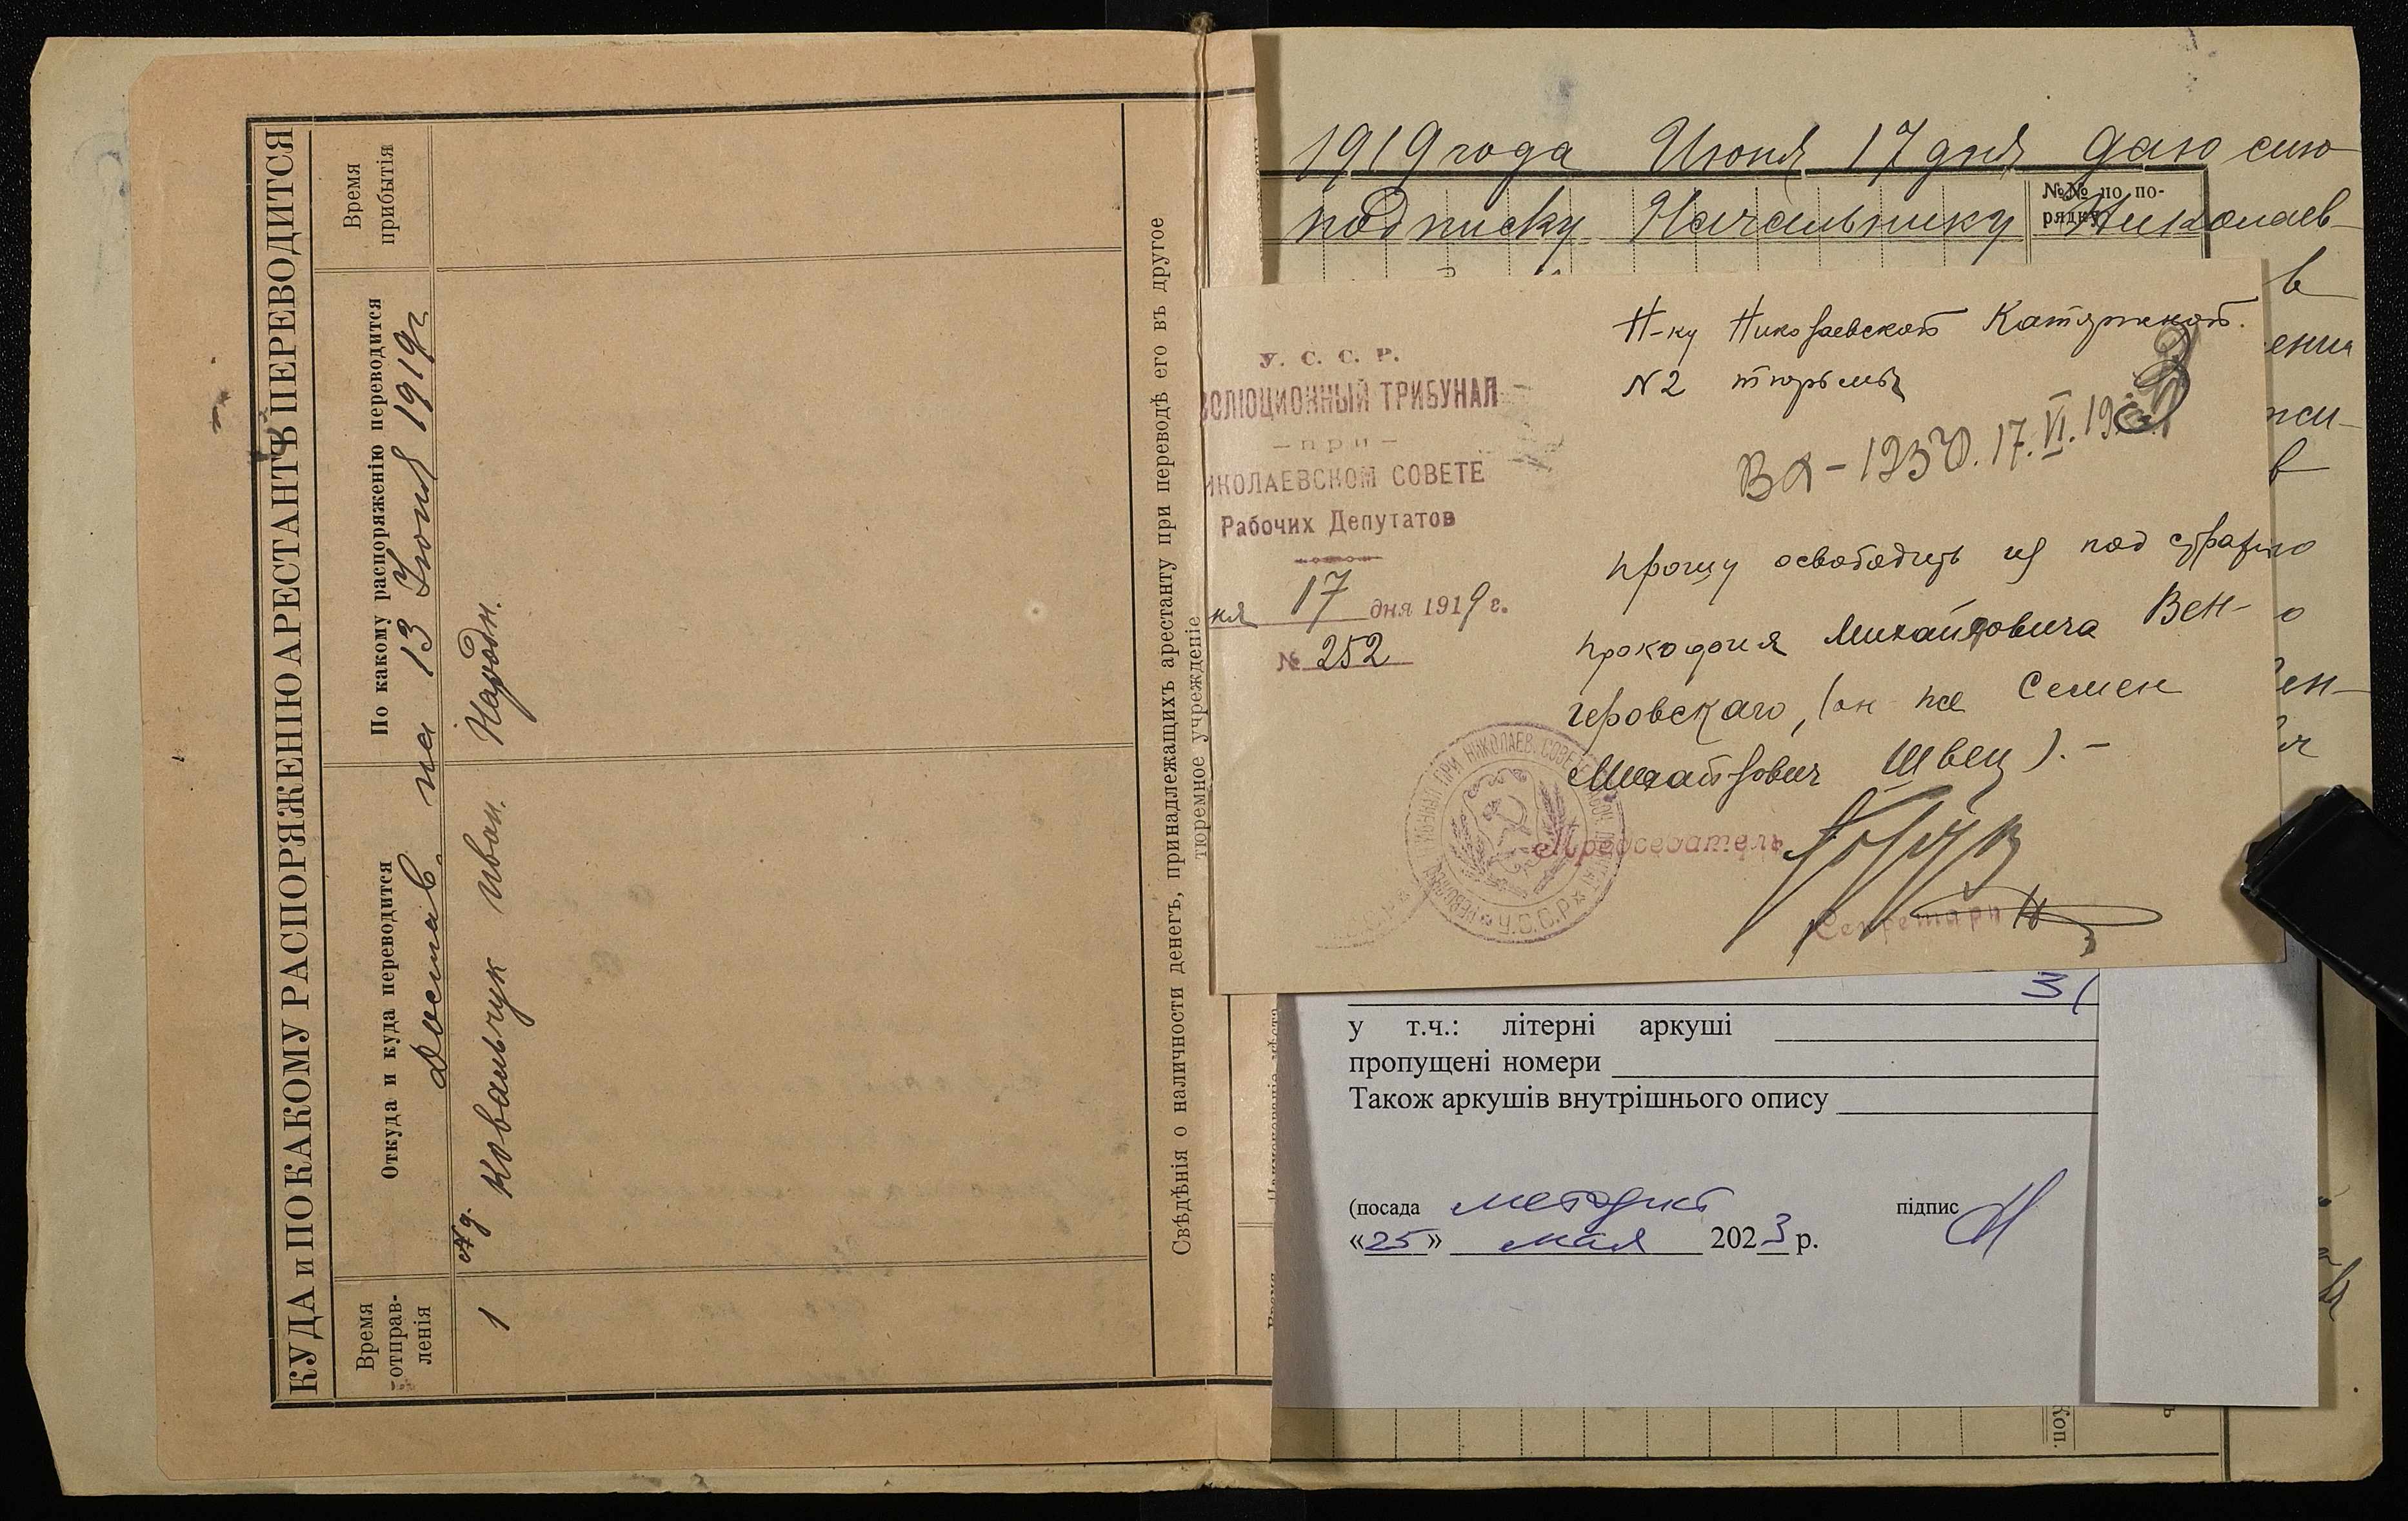 КУДА и ПО КАКОМУ РАСПОРЯЖЕНІЮ АРЕСТАНТЪ ПЕРЕВОДИТСЯ
Время отправ-
ленія
Откуда и куда переводится
По какому распоряженію переводится
Время
прибытія
Достав. на 13 Іюня 1919 г
1
Ковальчук Иван. Народн.
Свѣдѣнія о наличности денегъ, принадлежащихъ арестанту при переводѣ его въ другое
тюремное учрежденіе
1919 года Июня 17 дня даю сию
подписку Начальнику Николаев-
№№ по по-
рядку
в
ения
в
У. С. С. Р.
ВОЛЮЦИОННЫЙ ТРИБУНАЛ
— при —
ИКОЛАЕВСКОМ СОВЕТЕ
Рабочих Депутатов
ня 17 дня 1919 г.
№ 252
Н-ку Николаевской Каторжной
N2 тюрьмы
17.VI.19
Прошу освободить из под стражи
Прокофия Михайловича Вен-
геровскаго, (он же Семен
Михайлович Швец). —
Председатель
Секретарь
У.С.С.Р.
у т.ч.: літерні аркуші
пропущені номери
Також аркушів внутрішнього опису
(посада методист підпис
«25» мая 2023 р.
Коп.